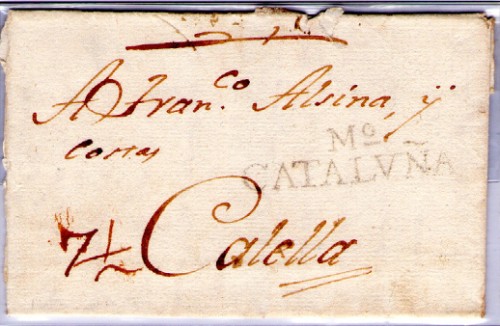 A Fran.co Alsina, y
costas
Mo
CATALVÑA
Calella